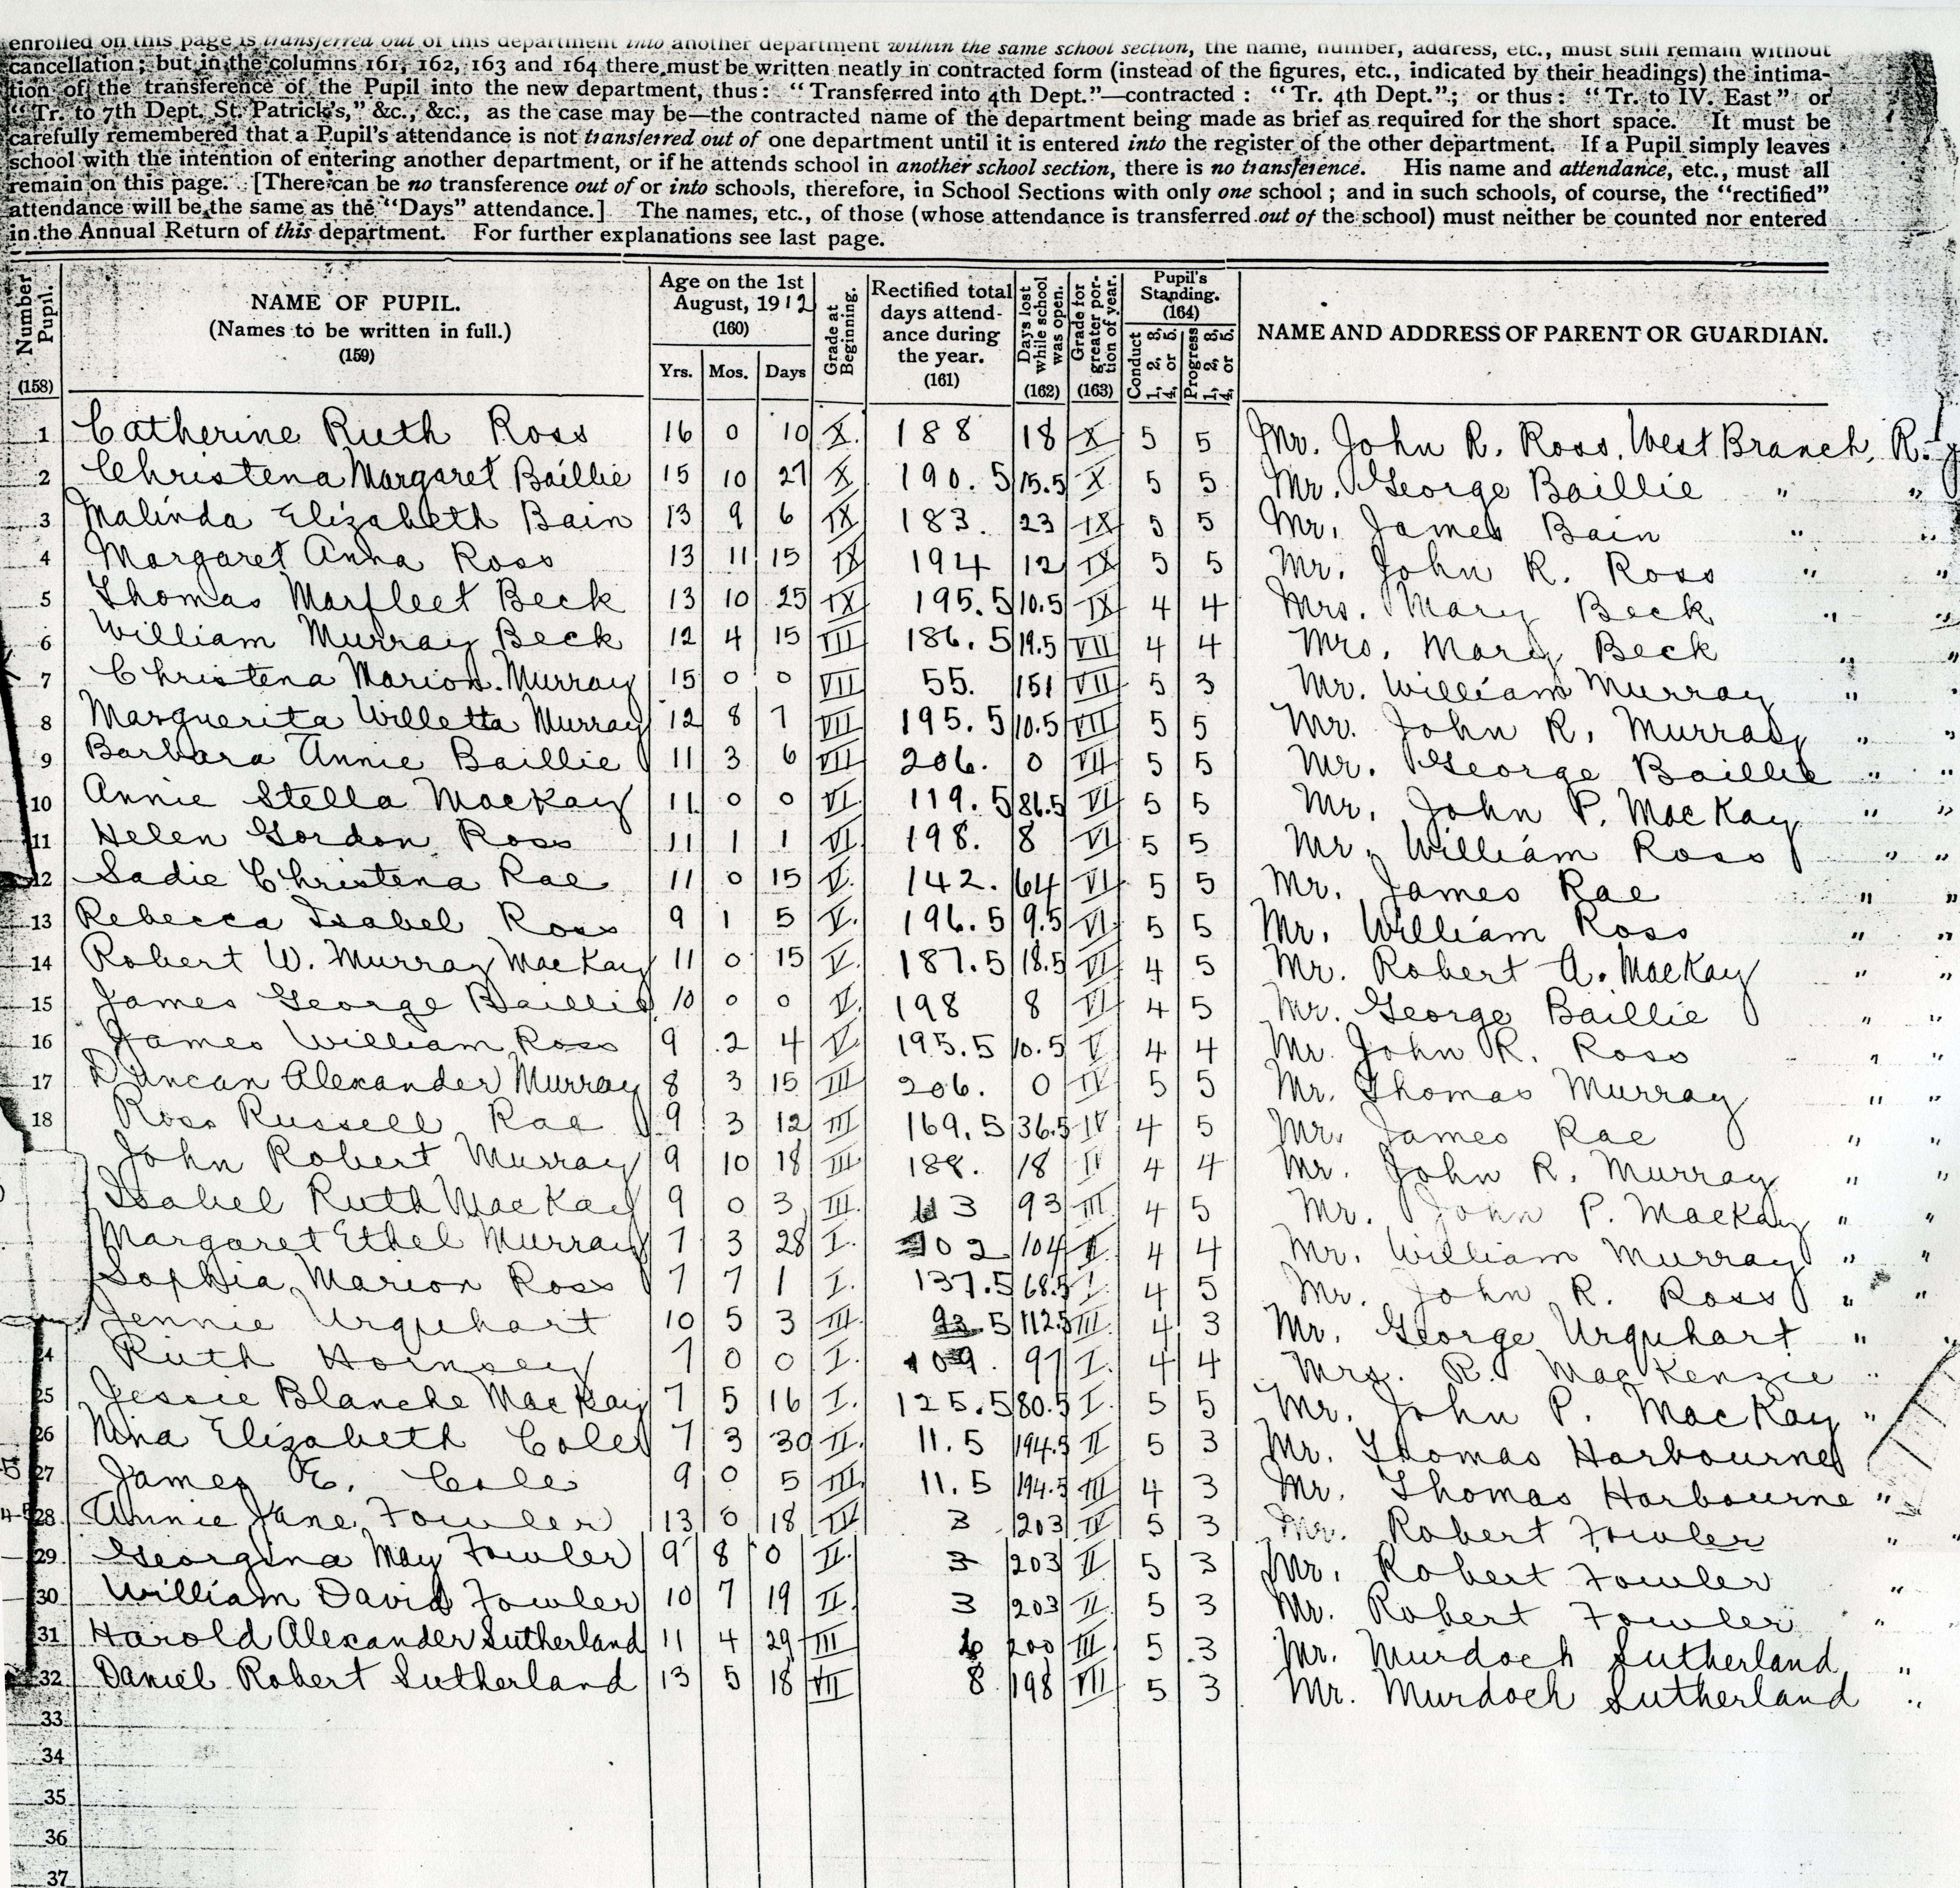 enrolled on this page is transferred out of this department into another department within the same school section, the name, number, address, etc., must still remain without
cancellation; but in the columns 161, 162, 163 and 164 there must be written neatly in contracted form (instead of the figures, etc., indicated by their headings) the intima-
tion of the transference of the Pupil into the new department, thus: "Transferred into 4th Dept."—contracted: "Tr. 4th Dept."; or thus: "Tr. to IV. East" or
"Tr. to 7th Dept. St. Patrick's," &c., &c., as the case may be—the contracted name of the department being made as brief as required for the short space. It must be
carefully remembered that a Pupil's attendance is not transferred out of one department until it is entered into the register of the other department. If a Pupil simply leaves
school with the intention of entering another department, or if he attends school in another school section, there is no transference. His name and attendance, etc., must all
remain on this page. [There can be no transference out of or into schools, therefore, in School Sections with only one school; and in such schools, of course, the "rectified"
attendance will be the same as the "Days" attendance.] The names, etc., of those (whose attendance is transferred out of the school) must neither be counted nor entered
in the Annual Return of this department. For further explanations see last page.
Number Pupil. (158) NAME OF PUPIL. (Names to be written in full.) (159) Age on the 1st August, 1912 (160) Yrs. Mos. Days Grade at Beginning. Rectified total days attendance during the year. (161) Days lost while school was open. (162) Grade for greater portion of year. (163) Pupil's Standing. (164) Conduct 1, 2, 3, 4, or 5. Progress 1, 2, 3, 4, or 5. NAME AND ADDRESS OF PARENT OR GUARDIAN.
1 Catherine Ruth Ross 16 0 10 X. 188 18 X 5 5 Mr. John R. Ross, West Branch, R.
2 Christena Margaret Baillie 15 10 27 X 190.5 15.5 X 5 5 Mr. George Baillie " "
3 Malinda Elizabeth Bain 13 9 6 IX 183. 23 IX 5 5 Mr. James Bain " "
4 Margaret Anna Ross 13 11 15 IX 194 12 IX 5 5 Mr. John R. Ross " "
5 Thomas Marfleet Beck 13 10 25 IX 195.5 10.5 IX 4 4 Mrs. Mary Beck " "
6 William Murray Beck 12 4 15 VII 186.5 19.5 VII 4 4 Mrs. Mary Beck " "
7 Christena Marion Murray 15 0 0 VII 55. 151 VII 5 3 Mr. William Murray " "
8 Marguerita Willetta Murray 12 8 7 VII 195.5 10.5 VII 5 5 Mr. John R. Murray " "
9 Barbara Annie Baillie 11 3 6 VII 206. 0 VII 5 5 Mr. George Baillie " "
10 Annie Stella MacKay 11 0 0 VI. 119.5 86.5 VI 5 5 Mr. John P. MacKay " "
11 Helen Gordon Ross 11 1 1 VI. 198. 8 VI 5 5 Mr. William Ross " "
12 Sadie Christena Rae 11 0 15 V. 142. 64 VI 5 5 Mr. James Rae " "
13 Rebecca Isabel Ross 9 1 5 V. 196.5 9.5 VI. 5 5 Mr. William Ross " "
14 Robert W. Murray MacKay 11 0 15 V. 187.5 18.5 VI 4 5 Mr. Robert A. MacKay " "
15 James George Baillie 10 0 0 V. 198 8 VI 4 5 Mr. George Baillie " "
16 James William Ross 9 2 4 V 195.5 10.5 V 4 4 Mr. John R. Ross " "
17 Duncan Alexander Murray 8 3 15 III 206. 0 IV 5 5 Mr. Thomas Murray " "
18 Ross Russell Rae 9 3 12 III 169.5 36.5 IV 4 5 Mr. James Rae " "
John Robert Murray 9 10 18 III 188. 18 IV 4 4 Mr. John R. Murray " "
Isabel Ruth MacKay 9 0 3 III. 113 93 III 4 5 Mr. John P. MacKay " "
Margaret Ethel Murray 7 3 28 I. 102 104 I. 4 4 Mr. William Murray " "
Sophia Marion Ross 7 7 1 I. 137.5 68.5 I. 4 5 Mr. John R. Ross " "
Jennie Urquhart 10 5 3 III. 93.5 112.5 III. 4 3 Mr. George Urquhart " "
24 Ruth Hornsey 7 0 0 I. 109. 97 I. 4 4 Mrs. R. MacKenzie "
25 Jessie Blanche MacKay 7 5 16 I. 125.5 80.5 I. 5 5 Mr. John P. MacKay "
26 Nina Elizabeth Cole 7 3 30 II. 11.5 194.5 II 5 3 Mr. Thomas Harbourne
27 James E. Cole 9 0 5 III. 11.5 194.5 III 4 3 Mr. Thomas Harbourne "
28 Annie Jane Fowler 13 0 18 IV 3 203 IV 5 3 Mr. Robert Fowler " "
29 Georgina May Fowler 9 8 0 II. 3 203 II 5 3 Mr. Robert Fowler "
30 William David Fowler 10 7 19 II. 3 203 II. 5 3 Mr. Robert Fowler "
31 Harold Alexander Sutherland 11 4 29 III 6 200 III 5 3 Mr. Murdoch Sutherland "
32 Daniel Robert Sutherland 13 5 18 VII 8 198 VII 5 3 Mr. Murdoch Sutherland "
33
34
35
36
37